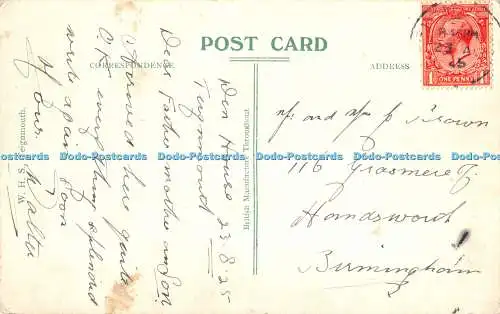 POST CARD
CORRESPONDENCE.
ADDRESS
Den House
Teignmouth
23.8.25
Dear Father mother an Son
Arrived here quite
O.K. everything splendid
write again soon
Your
Walter
W.H.S. Teignmouth.
British Manufacture Throughout.
Mr and Mrs J Brown
116 Grasmere Rd
Handsworth
Birmingham
ONE PENNY
1
23 A
25
Dodo-Postcards Dodo-Postcards Dodo-Postcards Dodo-Postcards Dodo-Postcards